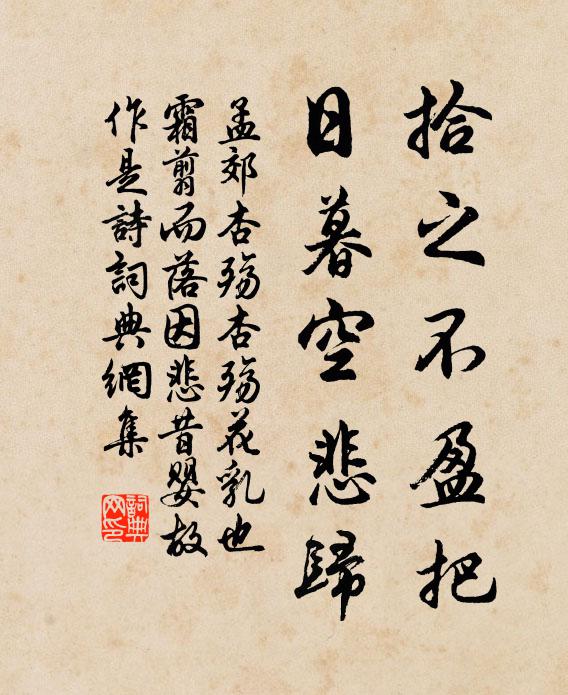 拾之不盈把
日暮空悲歸
孟郊杏殤杏殤花乳也
霜翦而落因悲昔嬰故
作是詩詞典網集
詞典
网印